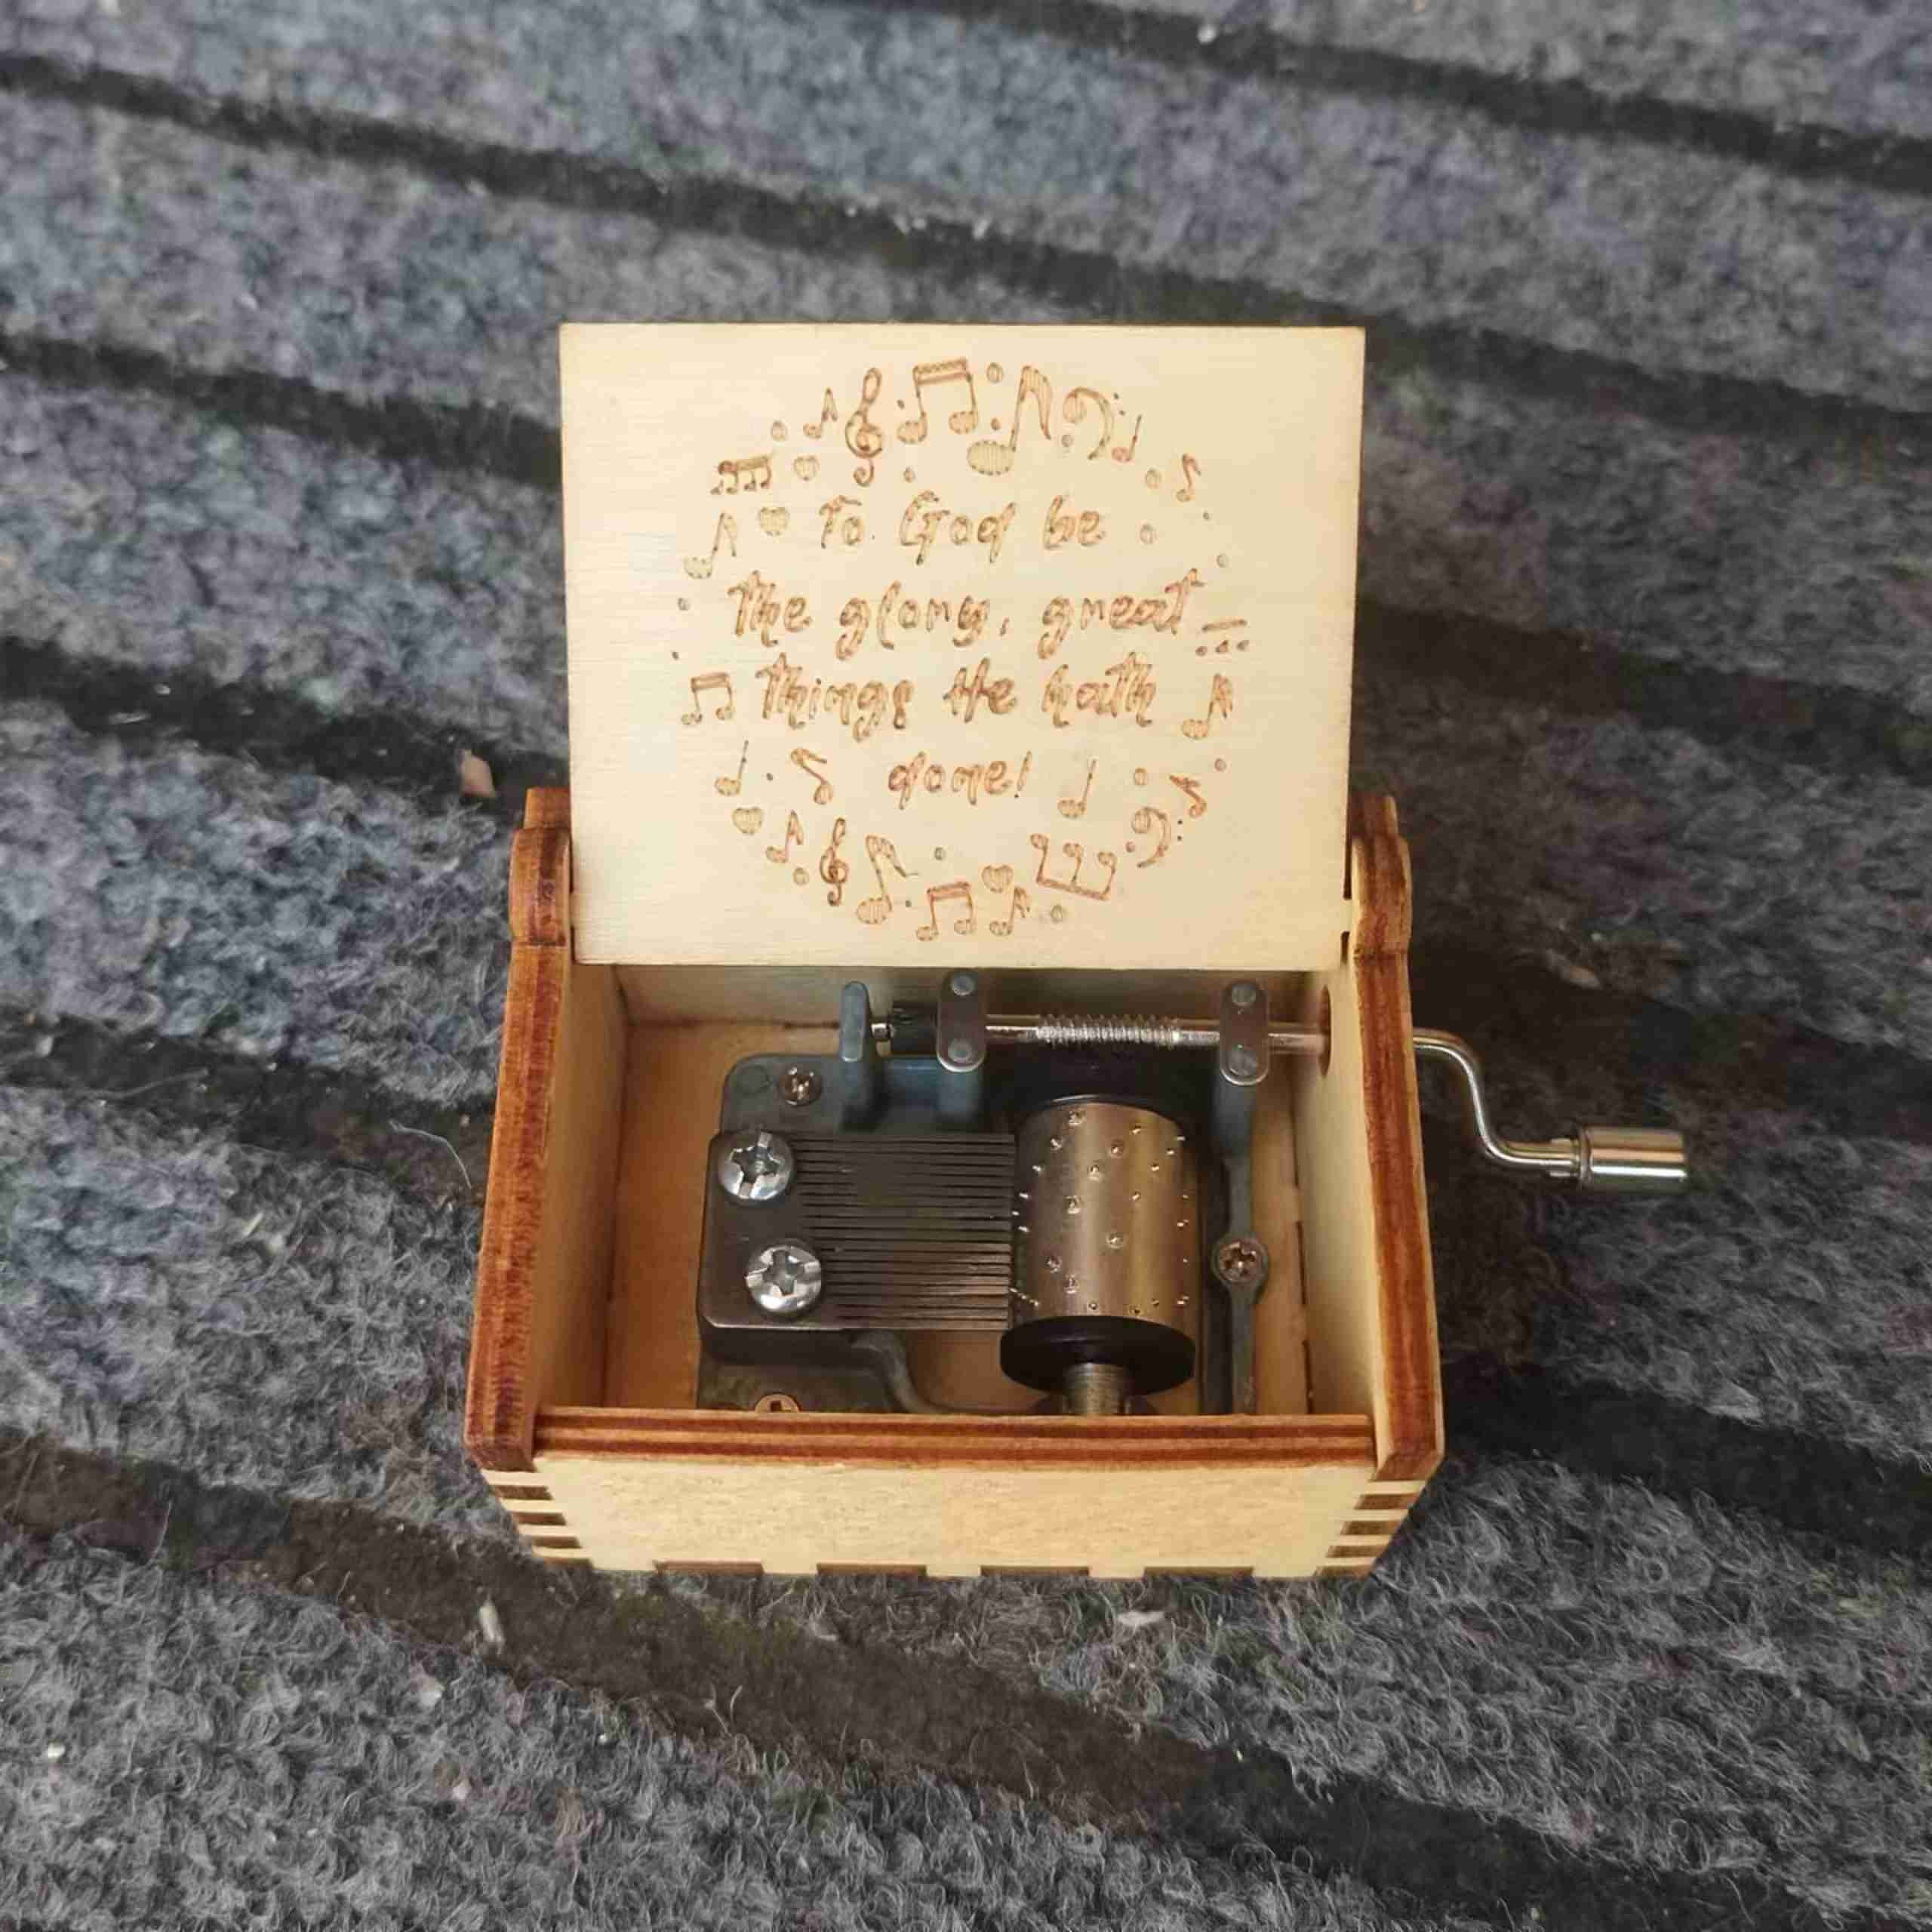 To God be
the glory, great
things He hath
done!